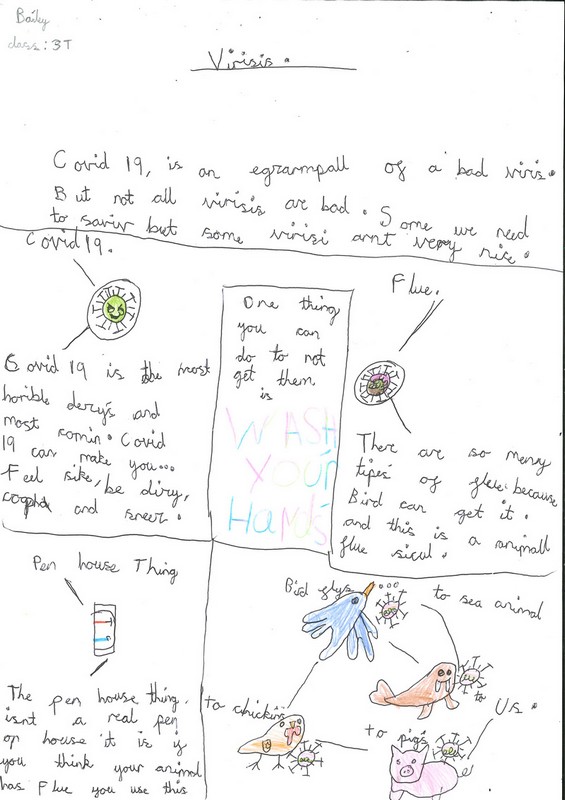 Bailey
class: 3T
Virisis.
Covid 19, is an egrarmpall of a bad viris.
But not all virisis ar bad. Some we need
to saviv but some virisi arnt very nise.
Covid 19.
Covid 19 is the most
horible derys and
most comin. Covid
19 can make you...
Feel sike, be diry,
and sneer.
One thing
you can
do to not
get them
is
WASH
YOUr
HaNdS
Flue.
There are so meny
tipes of flue because
Bird can get it.
and this is a animall
flue sicul.
Pen house Thing
The pen house thing.
isnt a real pen
or house it is if
you think your animal
has Flue you use this
Bird flys...
to sea animal
to Us.
to chickins
to pigs